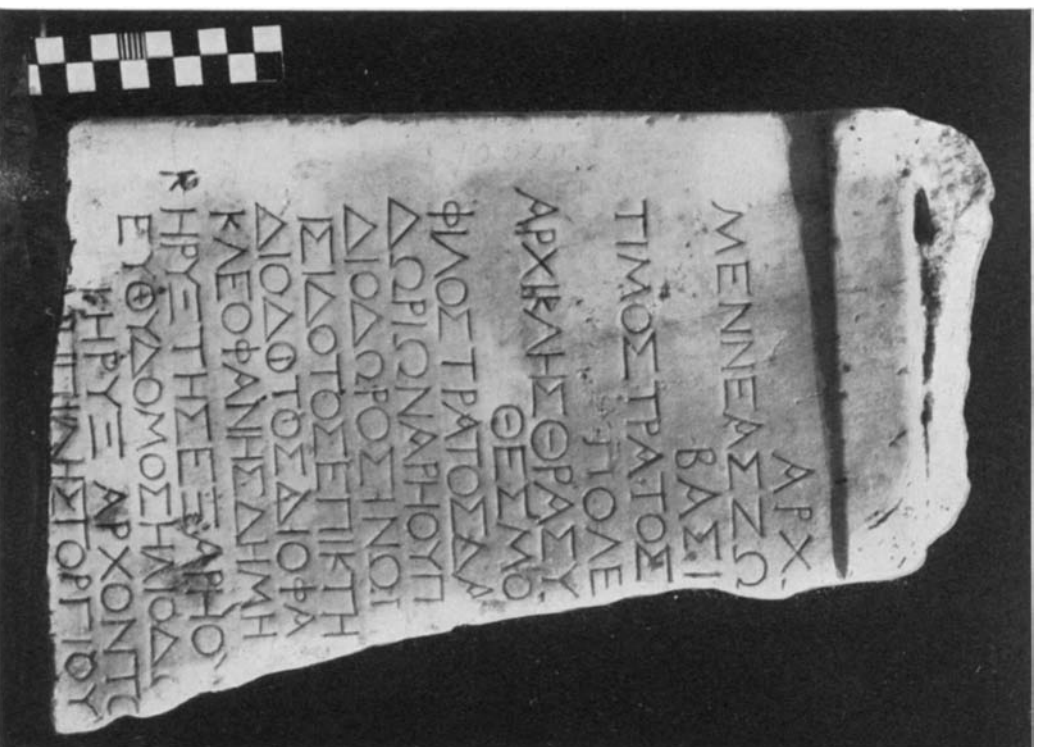 ΑΡΧ
ΜΕΝΝΕΑΣΖΩ
ΒΑΣΙ
ΤΙΜΟΣΤΡΑΤΟΣ
ΠΟΛΕ
ΑΡΧΙΚΛΗΣΘΡΑΣΥ
ΘΕΣΜΟ
ΦΙΛΟΣΤΡΑΤΟΣΑΛ
ΔΩΡΙΩΝΑΡΗΟΥΠ
ΔΙΟΔΩΡΟΣΗΝΙΟΙ
ΙΣΙΔΟΤΟΣΕΠΙΚΤΗ
ΔΙΟΔΟΤΟΣΔΙΟΦΑ
ΚΛΕΟΦΑΝΗΣΔΗΜΗ
ΚΗΡΥΞΤΗΣΕΞΑΡΗΟ
ΕΥΘΥΔΟΜΟΣΗΛΙΟΔ
ΚΗΡΥΞ ΑΡΧΟΝΤΟ
ΓΟΡΓΙΟΥ